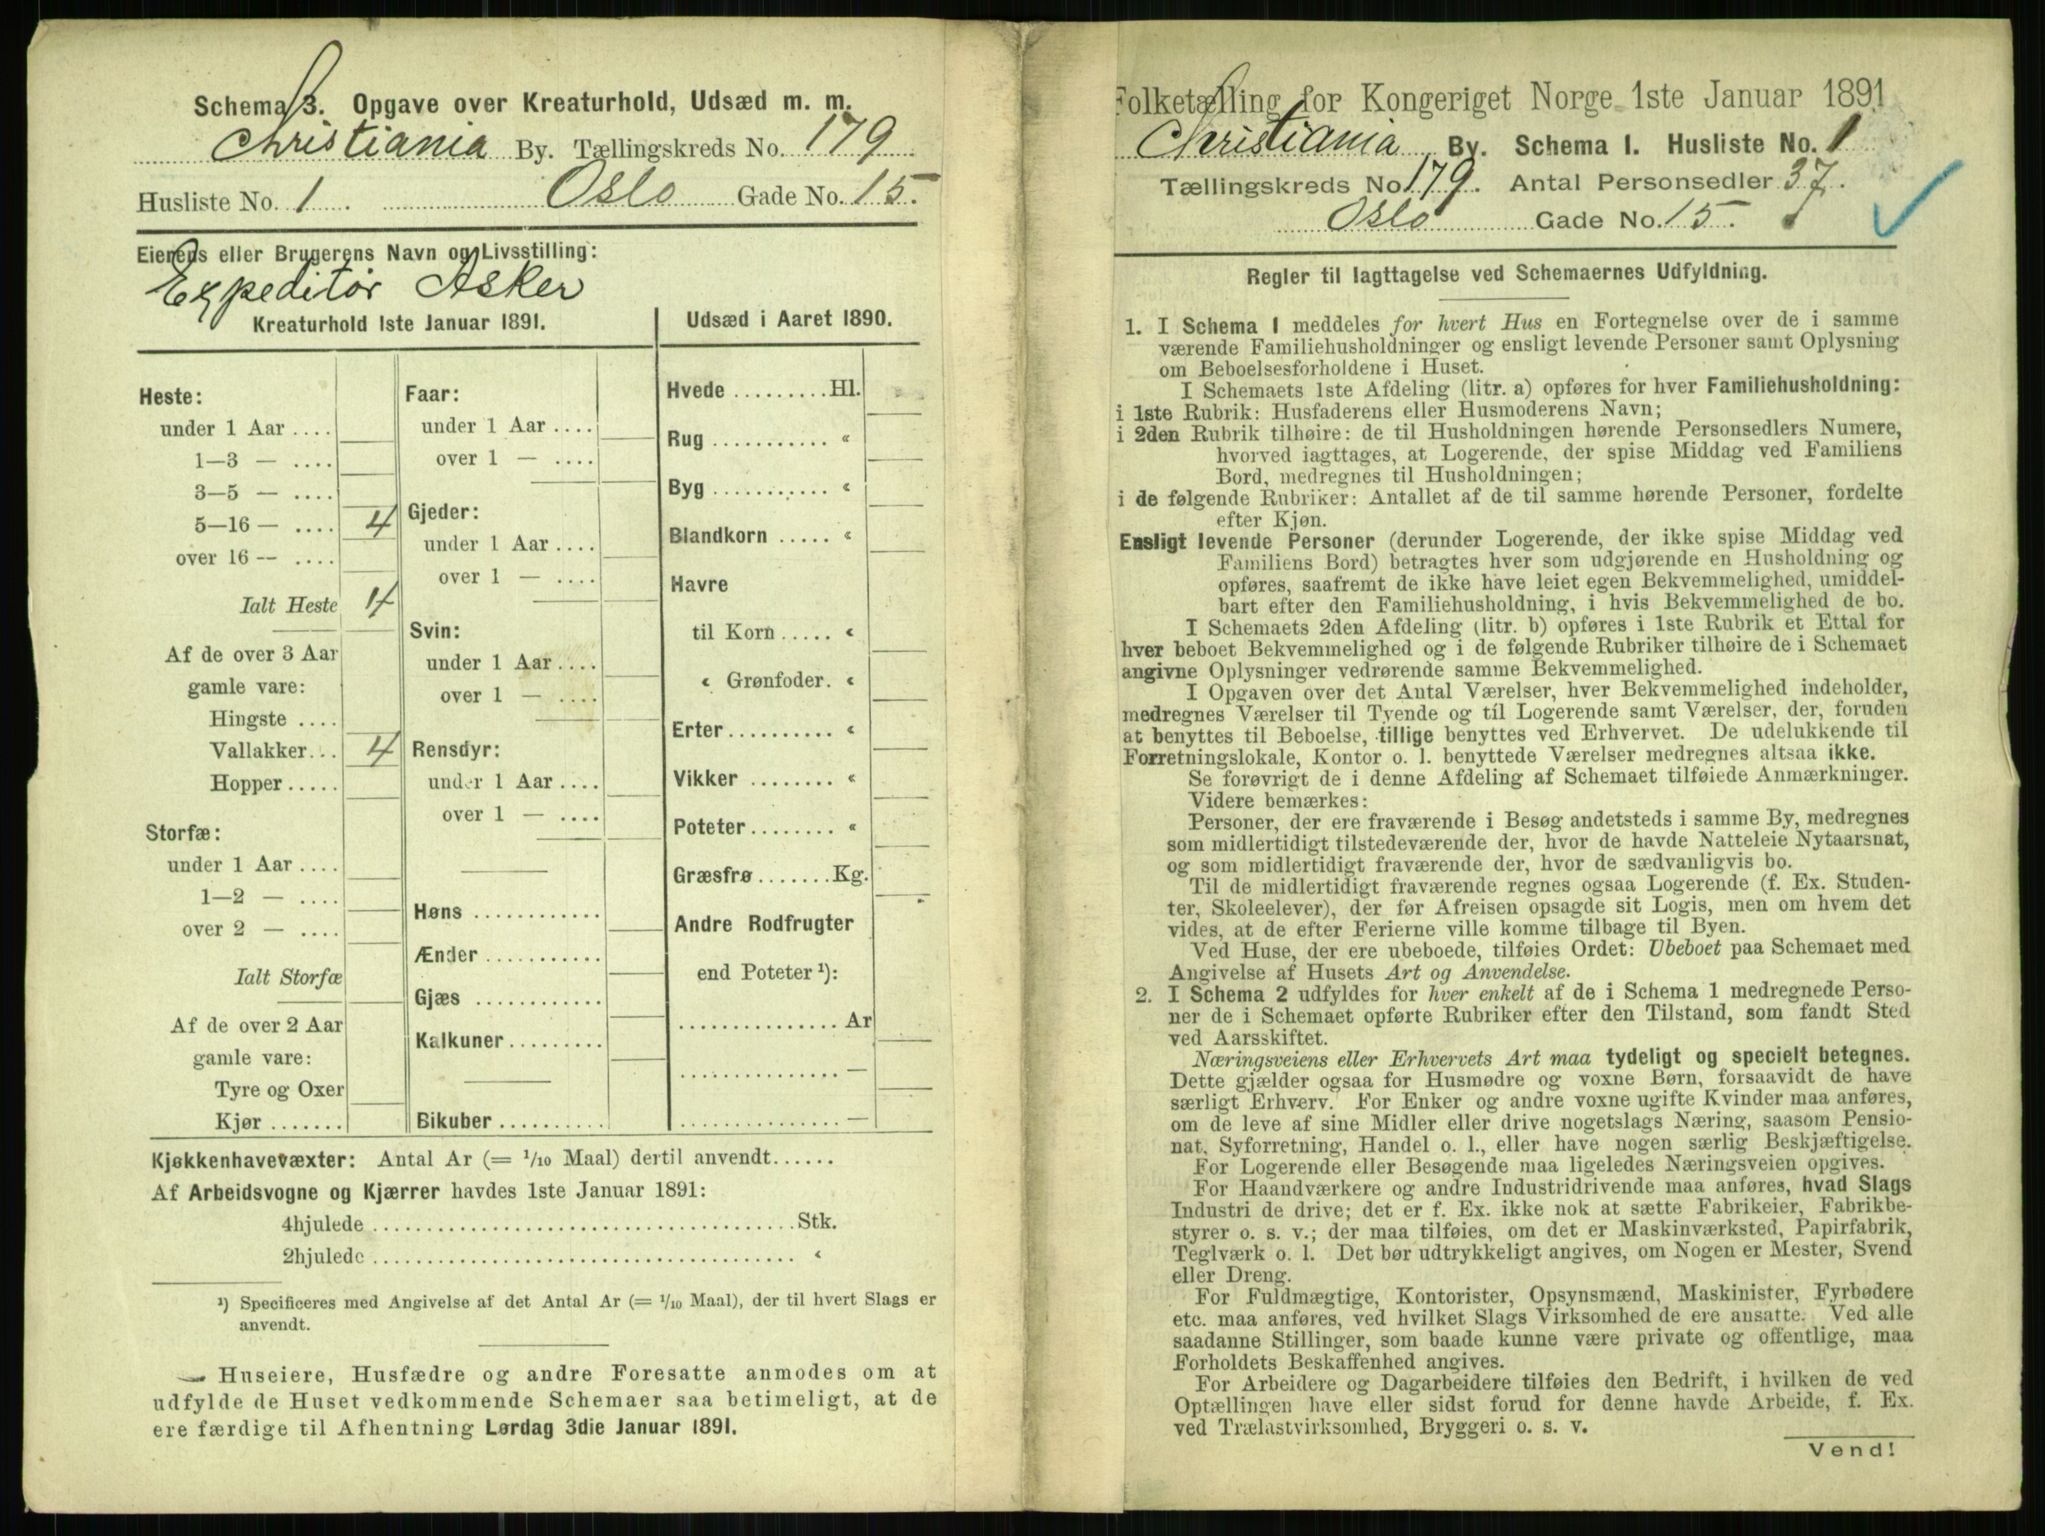 Schema 3. Opgave over Kreaturhold, Udsæd m. m.
Christiania By. Tællingskreds No. 179
Husliste No. 1. Oslo Gade No. 15.
Eierens eller Brugerens Navn og Livsstilling:
Expeditør Asker
Kreaturhold 1ste Januar 1891.
Heste:
under 1 Aar ....
1—3 — ....
3—5 — ....
5—16 — .... 4
over 16 — ....
Ialt Heste 4
Af de over 3 Aar
gamle vare:
Hingste ....
Vallakker... 4
Hopper.....
Storfæ:
under 1 Aar ....
1—2 — ....
over 2 — ....
Ialt Storfæ
Af de over 2 Aar
gamle vare:
Tyre og Oxer
Kjør .......
Faar:
under 1 Aar ....
over 1 — ....
Gjeder:
under 1 Aar ....
over 1 — ....
Svin:
under 1 Aar ....
over 1 — ....
Rensdyr:
under 1 Aar ....
over 1 — ....
Høns ............
Ænder ...........
Gjæs ............
Kalkuner.........
Bikuber ..........
Udsæd i Aaret 1890.
Hvede .........Hl.
Rug ........... «
Byg ............ «
Blandkorn ..... «
Havre
til Korn ..... «
« Grønfoder. «
Erter.......... «
Vikker ........ «
Poteter........ «
Græsfrø .......Kg.
Andre Rodfrugter
end Poteter ¹):
............... Ar
............... —
............... —
Kjøkkenhavevæxter: Antal Ar (= 1/10 Maal) dertil anvendt......
Af Arbeidsvogne og Kjærrer havdes 1ste Januar 1891:
4hjulede ........................................Stk.
2hjulede ........................................ «
¹) Specificeres med Angivelse af det Antal Ar (= 1/10 Maal), der til hvert Slags er
anvendt.
Huseiere, Husfædre og andre Foresatte anmodes om at
udfylde de Huset vedkommende Schemaer saa betimeligt, at de
ere færdige til Afhentning Lørdag 3die Januar 1891.
Folketælling for Kongeriget Norge 1ste Januar 1891
Christiania By. Schema 1. Husliste No. 1
Tællingskreds No 179. Antal Personsedler 37.
Oslo Gade No. 15.
Regler til Iagttagelse ved Schemaernes Udfyldning.
1. I Schema 1 meddeles for hvert Hus en Fortegnelse over de i samme
værende Familiehusholdninger og ensligt levende Personer samt Oplysning
om Beboelsesforholdene i Huset.
I Schemaets 1ste Afdeling (litr. a) opføres for hver Familiehusholdning:
i 1ste Rubrik: Husfaderens eller Husmoderens Navn;
i 2den Rubrik tilhøire: de til Husholdningen hørende Personsedlers Numere,
hvorved iagttages, at Logerende, der spise Middag ved Familiens
Bord, medregnes til Husholdningen;
i de følgende Rubriker: Antallet af de til samme hørende Personer, fordelte
efter Kjøn.
Ensligt levende Personer (derunder Logerende, der ikke spise Middag ved
Familiens Bord) betragtes hver som udgjørende en Husholdning og
opføres, saafremt de ikke have leiet egen Bekvemmelighed, umiddel-
bart efter den Familiehusholdning, i hvis Bekvemmelighed de bo.
I Schemaets 2den Afdeling (litr. b) opføres i 1ste Rubrik et Ettal for
hver beboet Bekvemmelighed og i de følgende Rubriker tilhøire de i Schemaet
angivne Oplysninger vedrørende samme Bekvemmelighed.
I Opgaven over det Antal Værelser, hver Bekvemmelighed indeholder,
medregnes Værelser til Tyende og til Logerende samt Værelser, der, foruden
at benyttes til Beboelse, tillige benyttes ved Erhvervet. De udelukkende til
Forretningslokale, Kontor o. l. benyttede Værelser medregnes altsaa ikke.
Se forøvrigt de i denne Afdeling af Schemaet tilføiede Anmærkninger.
Videre bemærkes:
Personer, der ere fraværende i Besøg andetsteds i samme By, medregnes
som midlertidigt tilstedeværende der, hvor de havde Natteleie Nytaarsnat,
og som midlertidigt fraværende der, hvor de sædvanligvis bo.
Til de midlertidigt fraværende regnes ogsaa Logerende (f. Ex. Studen-
ter, Skoleelever), der før Afreisen opsagde sit Logis, men om hvem det
vides, at de efter Ferierne ville komme tilbage til Byen.
Ved Huse, der ere ubeboede, tilføies Ordet: Ubeboet paa Schemaet med
Angivelse af Husets Art og Anvendelse.
2. I Schema 2 udfyldes for hver enkelt af de i Schema 1 medregnede Perso-
ner de i Schemaet opførte Rubriker efter den Tilstand, som fandt Sted
ved Aarsskiftet.
Næringsveiens eller Erhvervets Art maa tydeligt og specielt betegnes.
Dette gjælder ogsaa for Husmødre og voxne Børn, forsaavidt de have
særligt Erhverv. For Enker og andre voxne ugifte Kvinder maa anføres,
om de leve af sine Midler eller drive nogetslags Næring, saasom Pensio-
nat, Syforretning, Handel o. l., eller have nogen særlig Beskjæftigelse.
For Logerende eller Besøgende maa ligeledes Næringsveien opgives.
For Haandværkere og andre Industridrivende maa anføres, hvad Slags
Industri de drive; det er f. Ex. ikke nok at sætte Fabrikeier, Fabrikbe-
styrer o. s. v.; der maa tilføies, om det er Maskinværksted, Papirfabrik,
Teglværk o. l. Det bør udtrykkeligt angives, om Nogen er Mester, Svend
eller Dreng.
For Fuldmægtige, Kontorister, Opsynsmænd, Maskinister, Fyrbødere
etc. maa anføres, ved hvilket Slags Virksomhed de ere ansatte. Ved alle
saadanne Stillinger, som baade kunne være private og offentlige, maa
Forholdets Beskaffenhed angives.
For Arbeidere og Dagarbeidere tilføies den Bedrift, i hvilken de ved
Optællingen have eller sidst forud for denne havde Arbeide, f. Ex.
ved Trælastvirksomhed, Bryggeri o. s. v.
Vend!